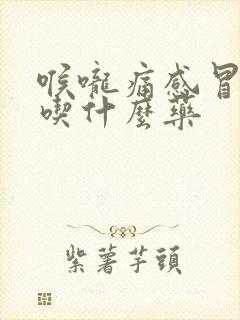 喉嚨痛感冒
喫什麼藥
紫薯芋頭